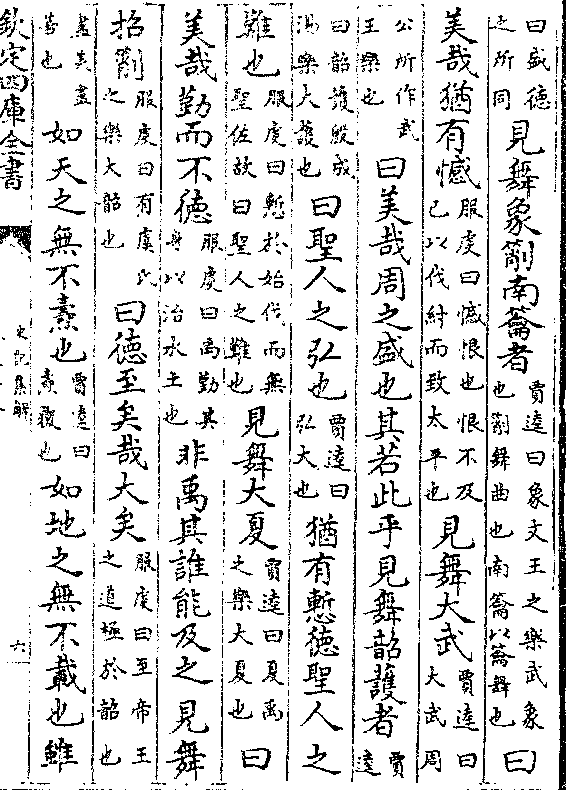 曰盛德之所同見舞象箾南籥者賈逵曰象文王之樂武象也箾舞曲也南籥以籥舞也曰
美哉猶有憾服虔曰憾恨也恨不及已以伐紂而致太平也見舞大武賈逵曰大武周
公所作武王樂也曰美哉周之盛也其若此乎見舞韶護者賈逵
曰韶護殷成湯樂大護也曰聖人之弘也賈逵曰弘大也猶有慙德聖人之
難也服虔曰慙於始伐而無聖佐故曰聖人之難也見舞大夏賈逵曰夏禹之樂大夏也曰
美哉勤而不德服虔曰禹勤其身以治水土也非禹其誰能及之見舞
招箾服虔曰有虞氏之樂大韶也曰德至矣哉大矣服虔曰至帝王之道極於韶也
盡美盡善也如天之無不燾也賈逵曰燾覆也如地之無不載也雖
欽定四庫全書
史記集解
六